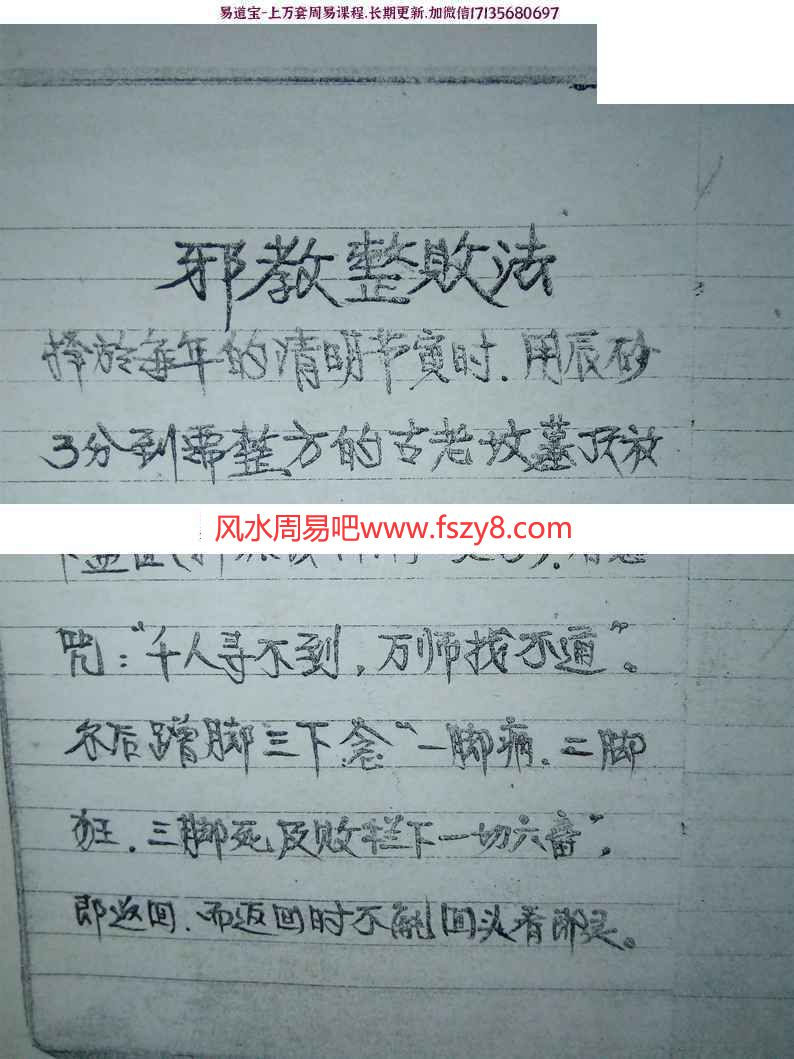 易道宝-上万套周易课程.长期更新.加微信17135680697
邪教整败法
择於每年的清明节寅时.用辰砂
3分到需整方的古老坟墓顶放
风水周易吧www.fszy8.com
咒:“千人寻不到,万师找不道”。
尔后蹭脚三下念“一脚病.二脚
狂.三脚死及败栏下一切六畜”,
即返回.而返回时不能回头看即灵。